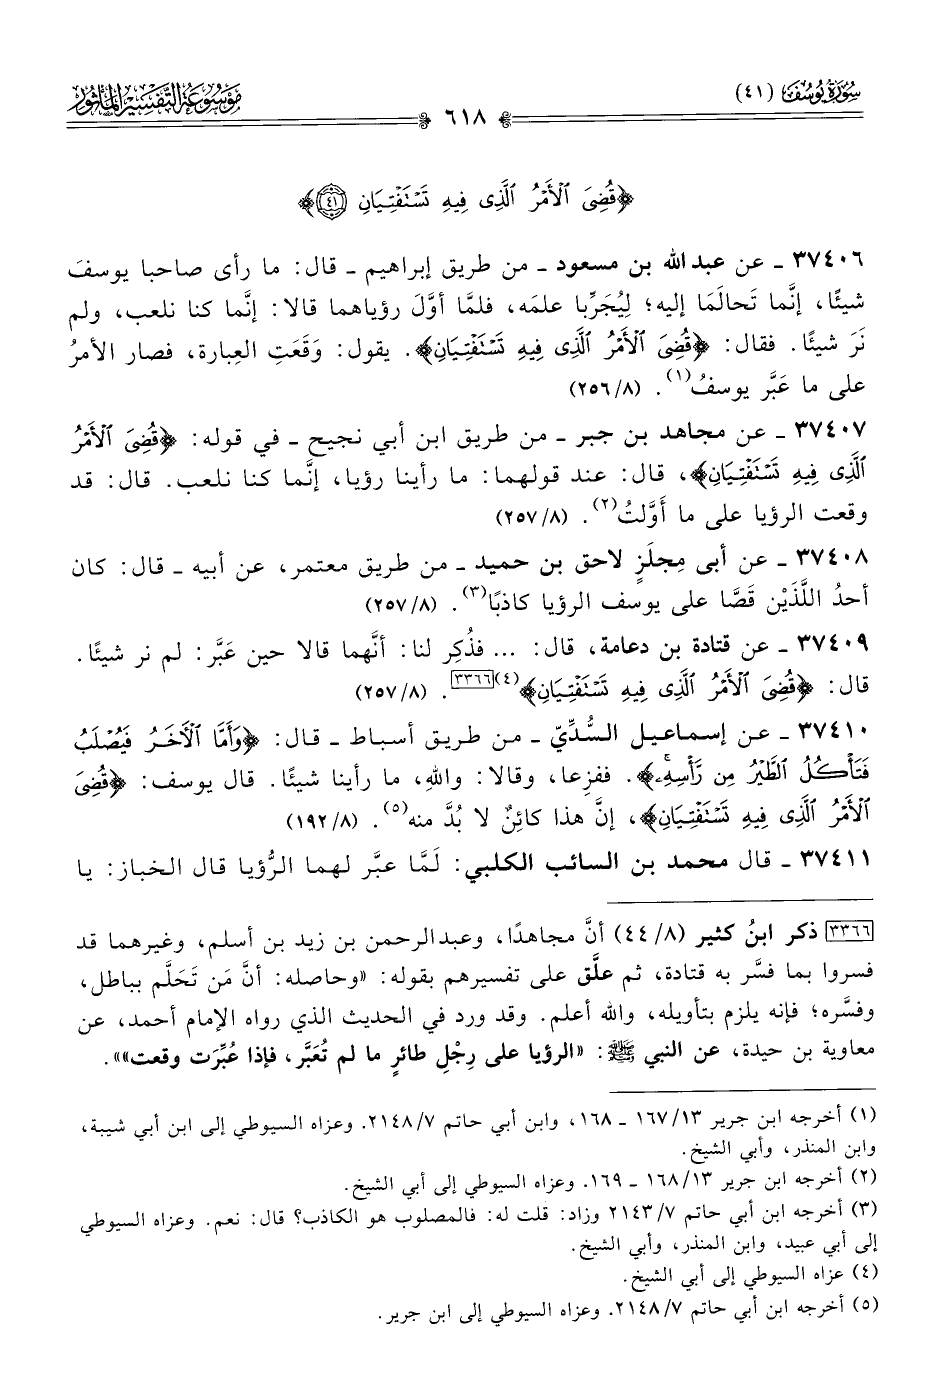 سورة يوسف (٤١)
موسوعة التفسير المأثور
٦١٨
﴿قُضِىَ ٱلْأَمْرُ ٱلَّذِى فِيهِ تَسْتَفْتِيَانِ ٤١﴾
٣٧٤٠٦ ـ عن عبد الله بن مسعود ـ من طريق إبراهيم ـ قال: ما رأى صاحبا يوسفَ
شيئًا، إنَّما تَحالَمَا إليه؛ لِيُجَرِّبا علمَه، فلمَّا أوَّلَ رؤياهما قالا: إنَّما كنا نلعب، ولم
نَرَ شيئًا. فقال: ﴿قُضِىَ ٱلْأَمْرُ ٱلَّذِى فِيهِ تَسْتَفْتِيَانِ﴾. يقول: وَقَعَتِ العِبارة، فصار الأمرُ
على ما عَبَّر يوسفُ(١). (٨/٢٥٦)
٣٧٤٠٧ ـ عن مجاهد بن جبر ـ من طريق ابن أبي نجيح ـ في قوله: ﴿قُضِىَ ٱلْأَمْرُ
ٱلَّذِى فِيهِ تَسْتَفْتِيَانِ﴾، قال: عند قولهما: ما رأينا رؤيا، إنَّما كنا نلعب. قال: قد
وقعت الرؤيا على ما أَوَّلتُ(٢). (٨/٢٥٧)
٣٧٤٠٨ ـ عن أبى مِجلَزٍ لاحق بن حميد ـ من طريق معتمر، عن أبيه ـ قال: كان
أحدُ اللَّذَيْن قَصَّا على يوسف الرؤيا كاذبًا(٣). (٨/٢٥٧)
٣٧٤٠٩ ـ عن قتادة بن دعامة، قال: ... فذُكِر لنا: أنَّهما قالا حين عَبَّر: لم نر شيئًا.
قال: ﴿قُضِىَ ٱلْأَمْرُ ٱلَّذِى فِيهِ تَسْتَفْتِيَانِ﴾(٤)[٣٣٦٦]. (٨/٢٥٧)
٣٧٤١٠ ـ عن إسماعيل السُّدِّيِّ ـ من طريق أسباط ـ قال: ﴿وَأَمَّا ٱلْأٓخَرُ فَيُصْلَبُ
فَتَأْكُلُ ٱلطَّيْرُ مِن رَّأْسِهِۦۚ﴾. ففزعا، وقالا: واللهِ، ما رأينا شيئًا. قال يوسف: ﴿قُضِىَ
ٱلْأَمْرُ ٱلَّذِى فِيهِ تَسْتَفْتِيَانِ﴾، إنَّ هذا كائِنٌ لا بُدَّ منه(٥). (٨/١٩٢)
٣٧٤١١ ـ قال محمد بن السائب الكلبي: لَمَّا عبَّر لهما الرُّؤيا قال الخباز: يا
[٣٣٦٦] ذكر ابنُ كثير (٨/٤٤) أنَّ مجاهدًا، وعبدالرحمن بن زيد بن أسلم، وغيرهما قد
فسروا بما فسَّر به قتادة، ثم علَّق على تفسيرهم بقوله: «وحاصله: أنَّ مَن تَحَلَّم بباطل،
وفسَّره؛ فإنه يلزم بتأويله، والله أعلم. وقد ورد في الحديث الذي رواه الإمام أحمد، عن
معاوية بن حيدة، عن النبي ﷺ: «الرؤيا على رِجْلِ طائرٍ ما لم تُعَبَّر، فإذا عُبِّرَت وقعت»».
(١) أخرجه ابن جرير ١٣/١٦٧ ـ ١٦٨، وابن أبي حاتم ٧/٢١٤٨. وعزاه السيوطي إلى ابن أبي شيبة،
وابن المنذر، وأبي الشيخ.
(٢) أخرجه ابن جرير ١٣/١٦٨ ـ ١٦٩. وعزاه السيوطي إلى أبي الشيخ.
(٣) أخرجه ابن أبي حاتم ٧/٢١٤٣ وزاد: قلت له: فالمصلوب هو الكاذب؟ قال: نعم. وعزاه السيوطي
إلى أبي عبيد، وابن المنذر، وأبي الشيخ.
(٤) عزاه السيوطي إلى أبي الشيخ.
(٥) أخرجه ابن أبي حاتم ٧/٢١٤٨. وعزاه السيوطي إلى ابن جرير.